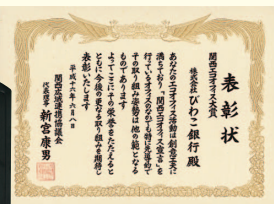 表彰状
関西エコオフィス大賞
株式会社 びわこ銀行殿
あなたのエコオフィス活動は創意工夫に
満ちており「関西エコオフィス宣言」を
行っているオフィスのなかでも特に先導的で
その取り組み姿勢は他の範となる
ものであります
よってここにその栄誉をたたえると
ともに今後の更なる取り組みを期待し
表彰いたします
平成十六年六月八日
関西広域連携協議会
代表理事 新宮康男